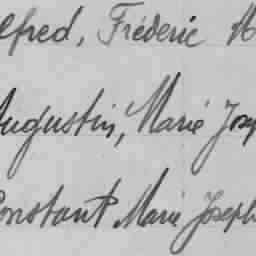 lfred, Fréderic M
Augustin, Marie Josep
Constant Marie Joseph